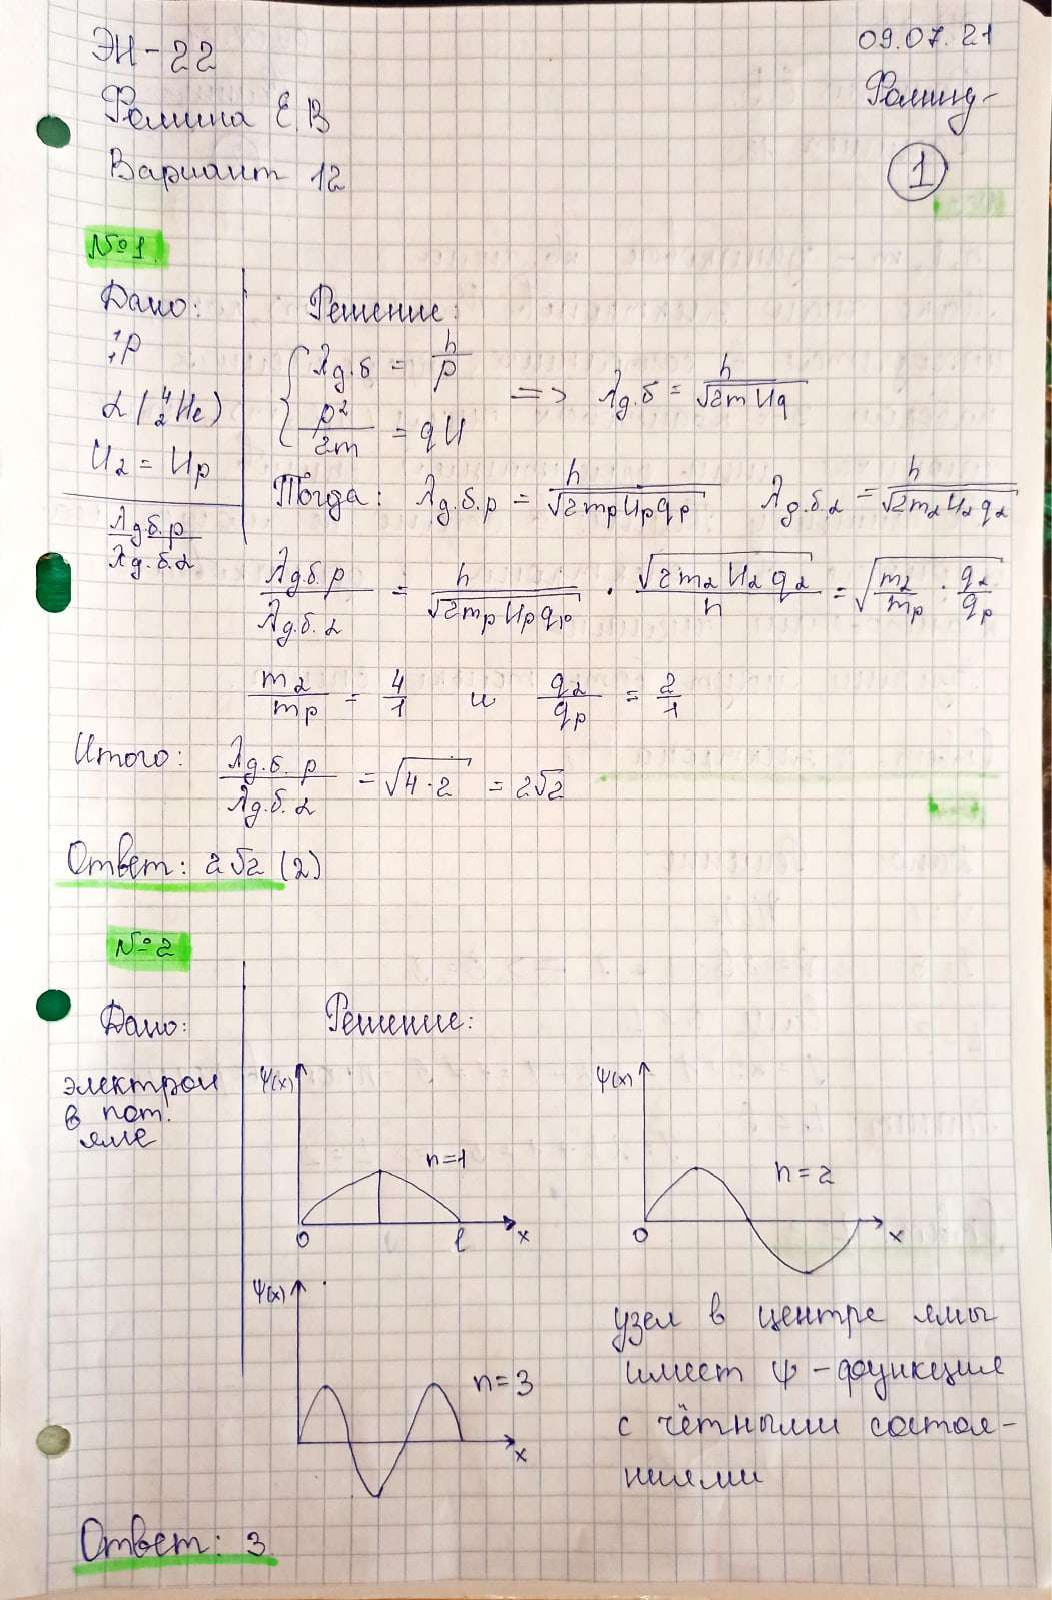 ЭН-22
09.07.21
Фомина Е.В
Вариант 12
1
№1
Дано:
Решение:
¹₁p
α(⁴₂He)
Uα = Up
λд.б.р / λд.б.α
{ λд.б = h/p
p²/2m = qU
=> λд.б = h/√2mUq
Тогда: λд.б.р = h/√2mpUpqp λд.б.α = h/√2mαUαqα
λд.б.р/λд.б.α = h/√2mpUpqp · √2mαUαqα/h = √mα/mp · qα/qp
mα/mp = 4/1 и qα/qp = 2/1
Итого: λд.б.р/λд.б.α = √4·2 = 2√2
Ответ: 2√2 (2)
№2
Дано:
Решение:
электрон
в пот.
яме
Ψ(x)
n=1
0 l x
Ψ(x)
n=2
0 x
Ψ(x)
n=3
x
узел в центре ямы
имеет ψ-функция
с чётными состоя-
ниями
Ответ: 3